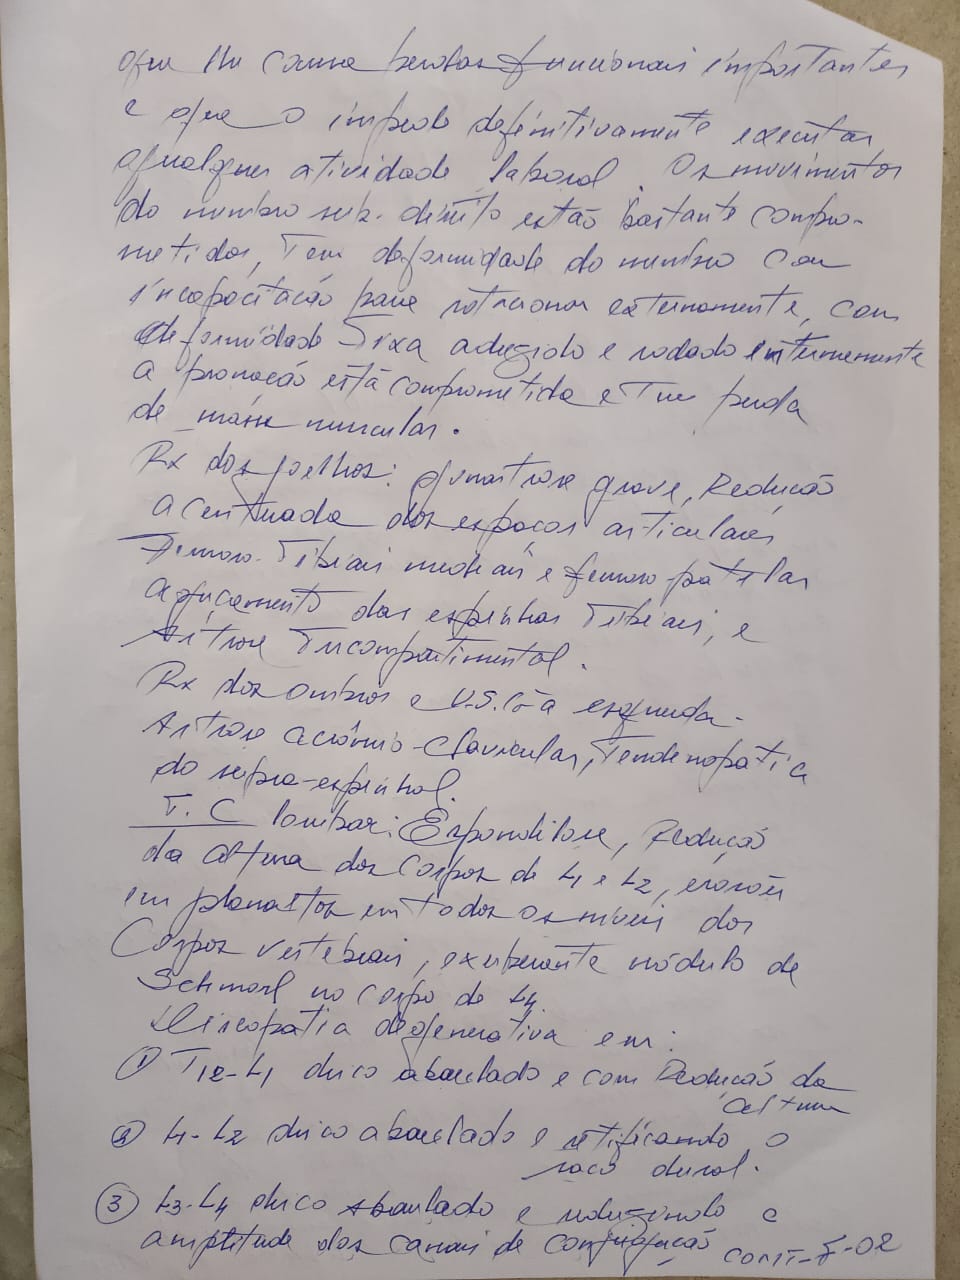 que lhe causa perdas funcionais importantes
e que o impede definitivamente executar
qualquer atividade laboral. Os movimentos
do membro sup. direito estão bastante compro-
metidos, Tem deformidade do membro com
incapacitação para rotacionar externamente, com
deformidade fixa aduzido e rodado internamente
a pronação está comprometida e Tem perda
de massa muscular.
Rx dos joelhos: gonartrose grave, Redução
acentuada dos espaços articulares
Femoro-Tibiais mediais e femoro-patelar
aguçamento das espinhas Tibiais, e
Artrose Tricompartimental.
Rx dos ombros e U.S.G à esquerda-
Artrose acrômio-clavicular, Tendinopatia
do supra-espinhal.
T.C lombar: Espondilose, Redução
da altura dos corpos de L1 e L2, erosões
em planaltos em todos os níveis dos
Corpos vertebrais, exuberante nódulo de
Schmorl no corpo de L4.
Discopatia degenerativa em:
① T12-L1 disco abaulado e com Redução da
altura
② L1-L2 disco abaulado e retificando o
saco dural.
③ L3-L4 disco abaulado e reduzindo a
amplitude dos canais de conjugação cont-F-02